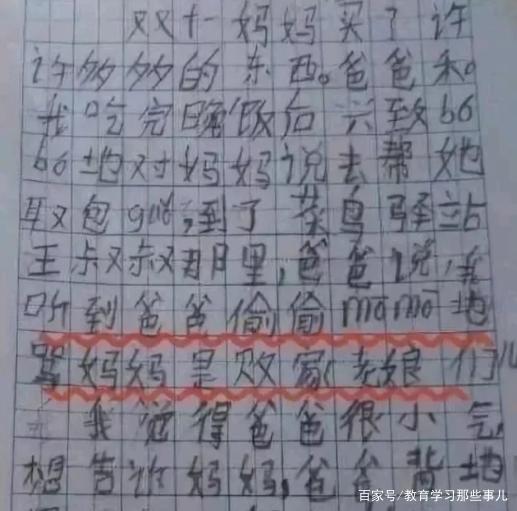 双十一妈妈买了许
许多多的东西。爸爸和
我吃完晚饭后兴致bó
bó地对妈妈说去帮她
取包guǒ,到了菜鸟驿站
王叔叔那里,爸爸说,我
听到爸爸偷偷mōmō地
骂妈妈是败家老娘们儿
我觉得爸爸很小气,
想告诉妈妈,爸爸背地
百家号/教育学习那些事儿